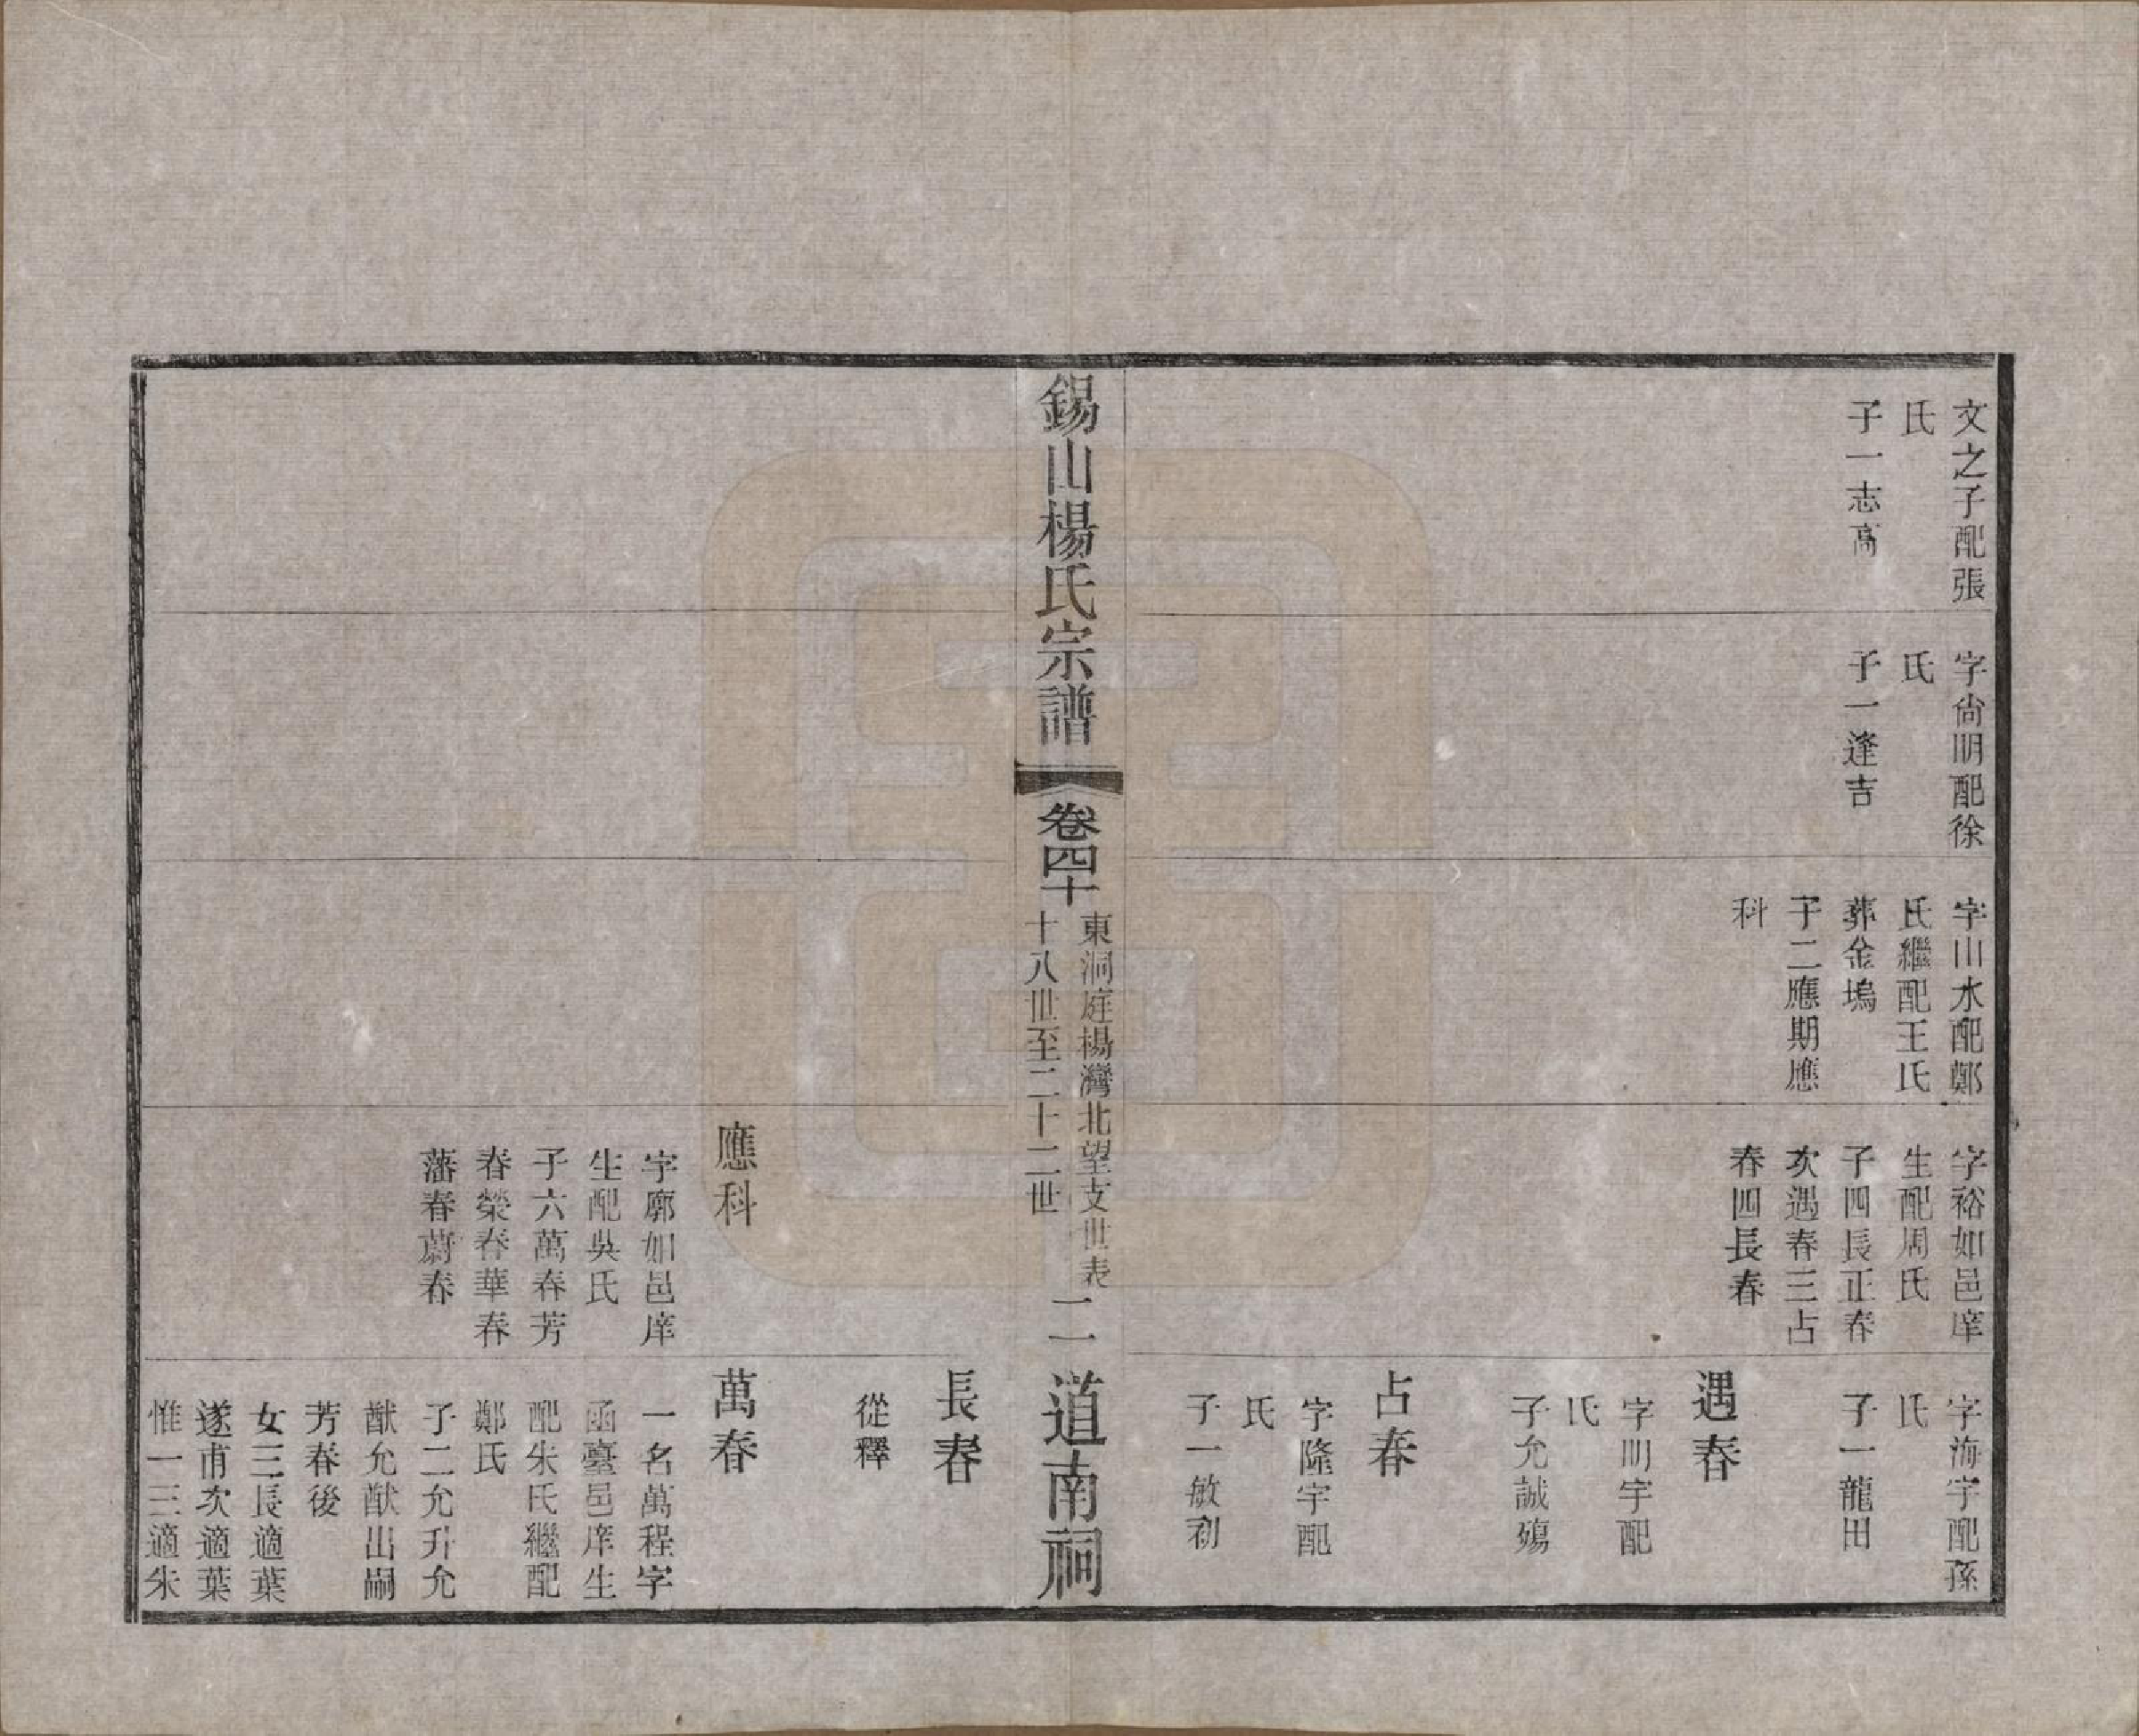 文之子配張
氏
子一志高
字尙明配徐
氏
子一逢吉
字山水配鄭
氏繼配王氏
葬金塢
子二應期應
科
字裕如邑庠
生配周氏
子四長正春
次遇春三占
春四長春
字海宇配孫
氏
子一龍田
遇春
字明宇配
氏
子允誠殤
占春
字隆宇配
氏
子一敏初
錫山楊氏宗譜
卷四十
東洞庭楊灣北望支世表
十八世至二十二世
二
道南祠
長春
從釋
應科
字廓如邑庠
生配吳氏
子六萬春芳
春榮春華春
藩春蔚春
萬春
一名萬程字
函臺邑庠生
配朱氏繼配
鄭氏
子二允升允
猷允猷出嗣
芳春後
女三長適葉
遂甫次適葉
惟一三適朱